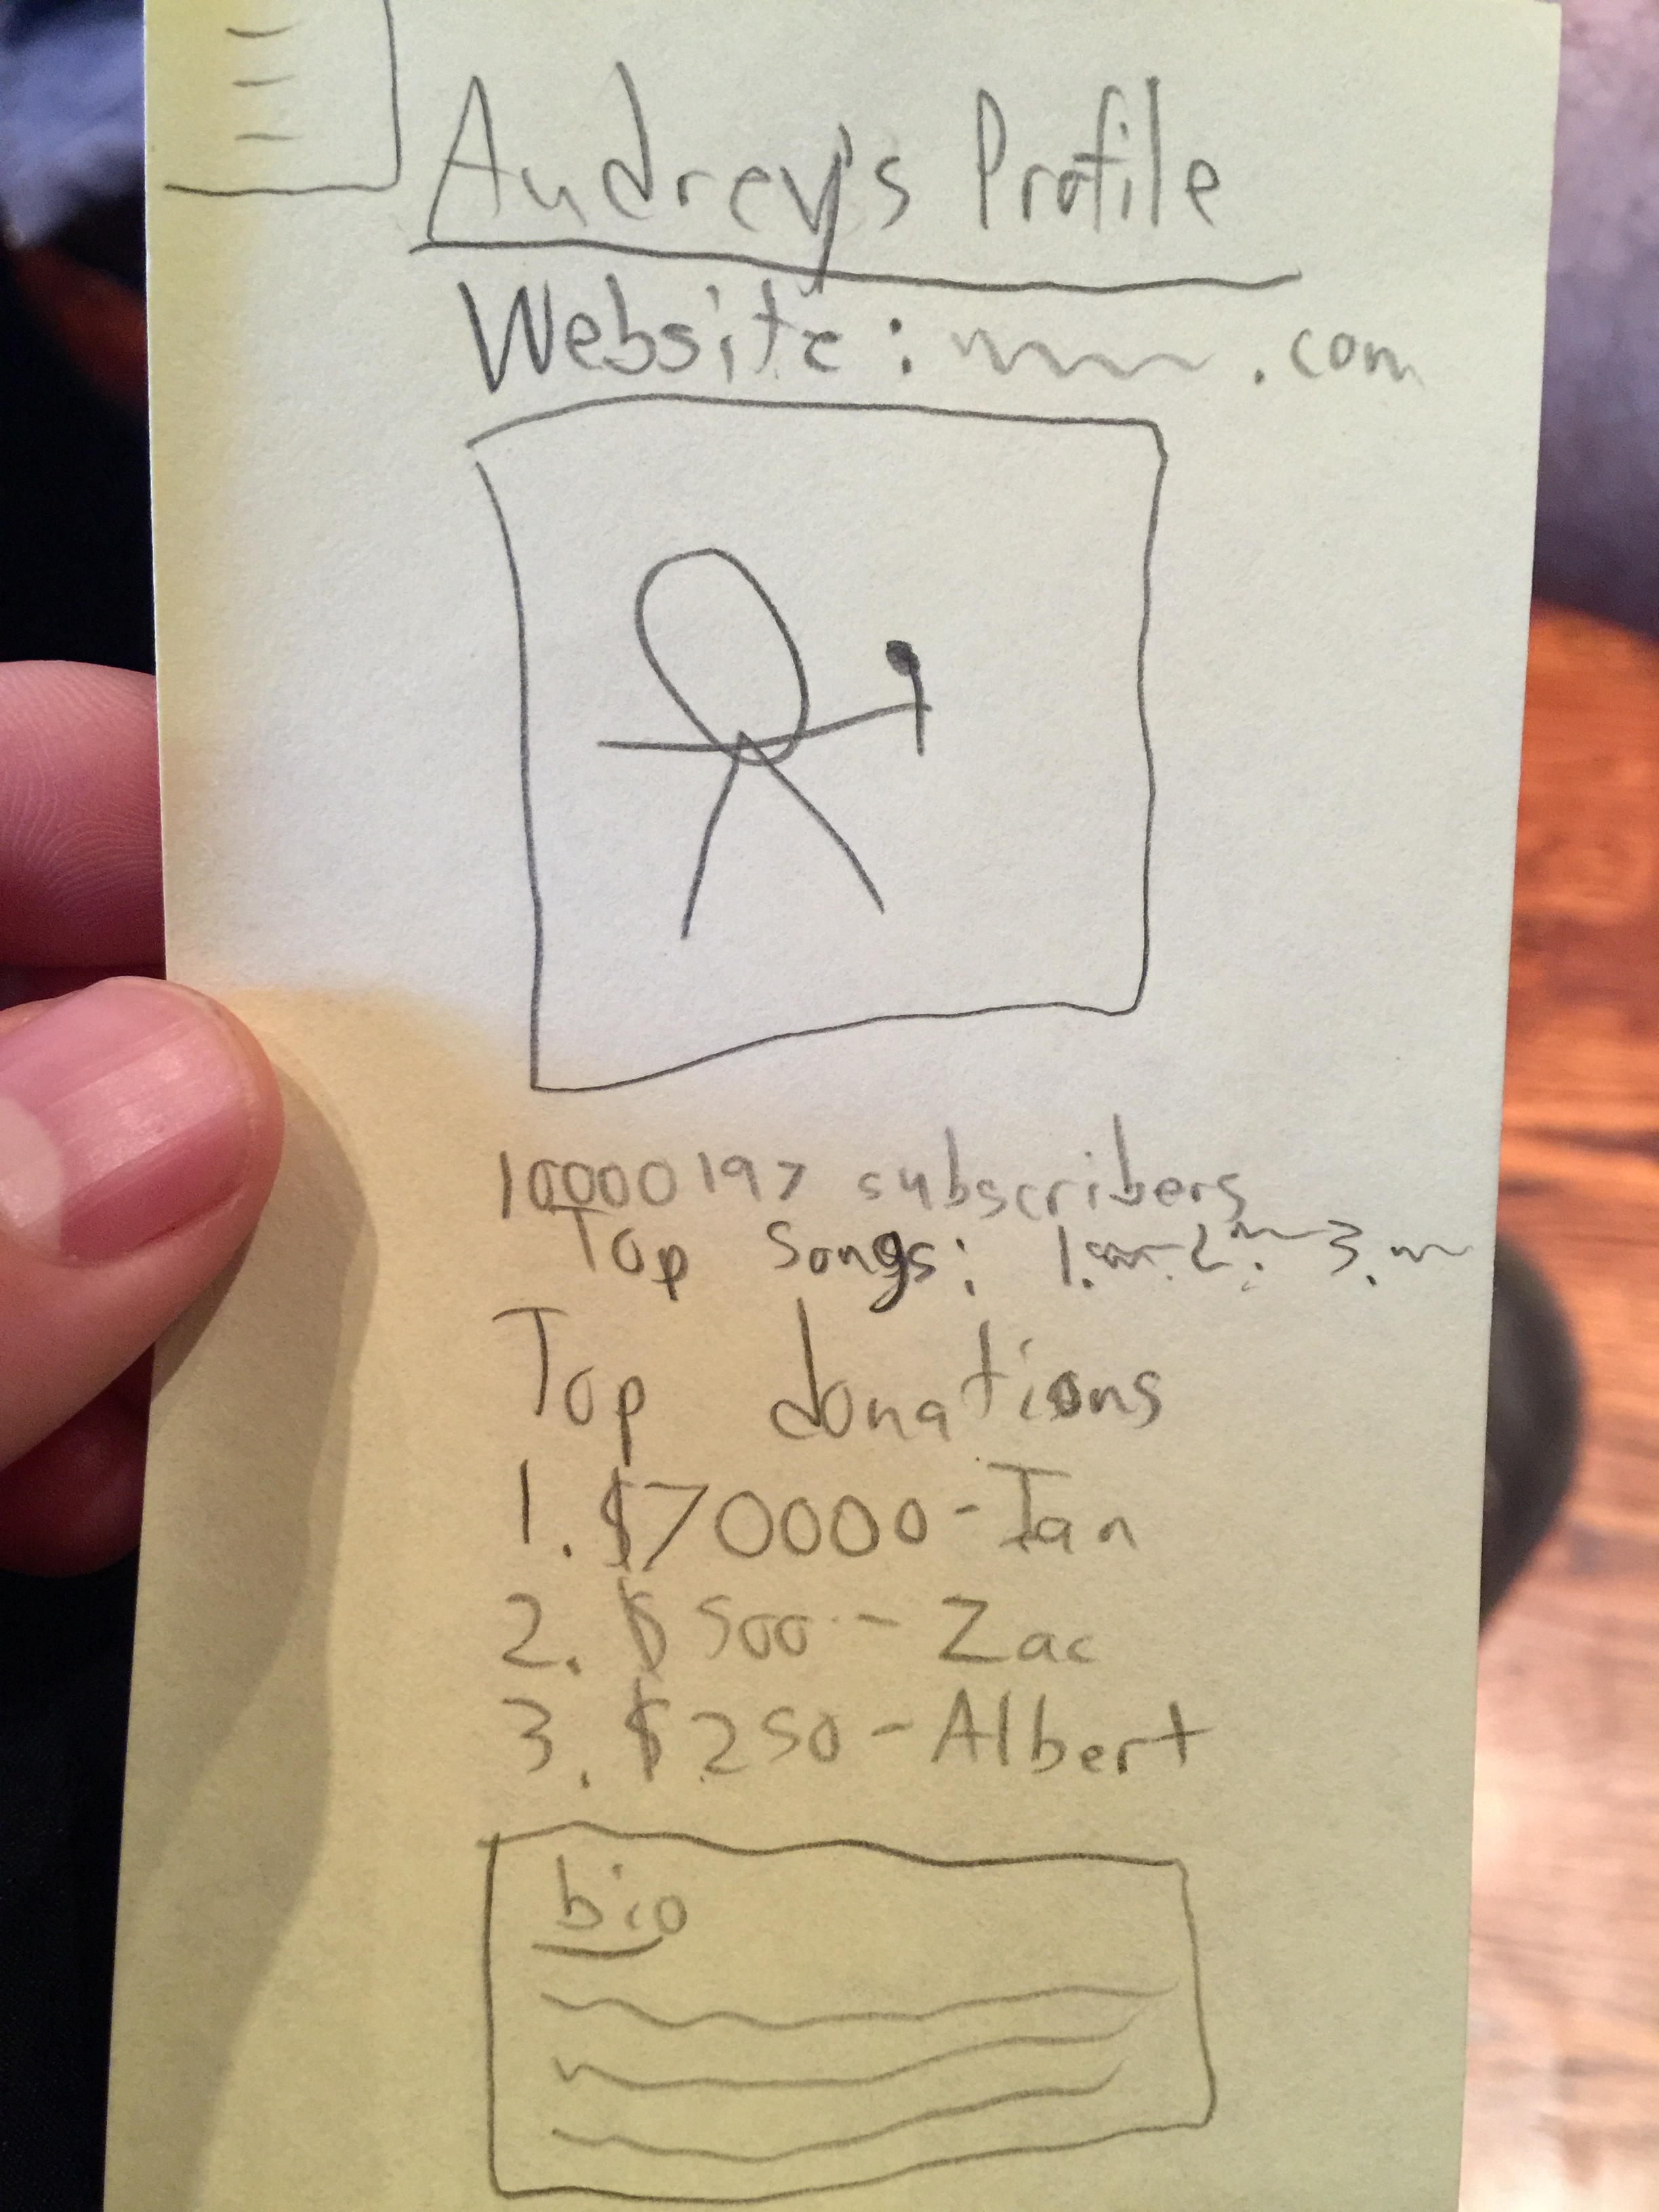 Audrey's Profile
Website: .com
10000197 subscribers
Top songs: 1. 2. 3.
Top donations
1. $70000 - Ian
2. $500 - Zac
3. $250 - Albert
bio